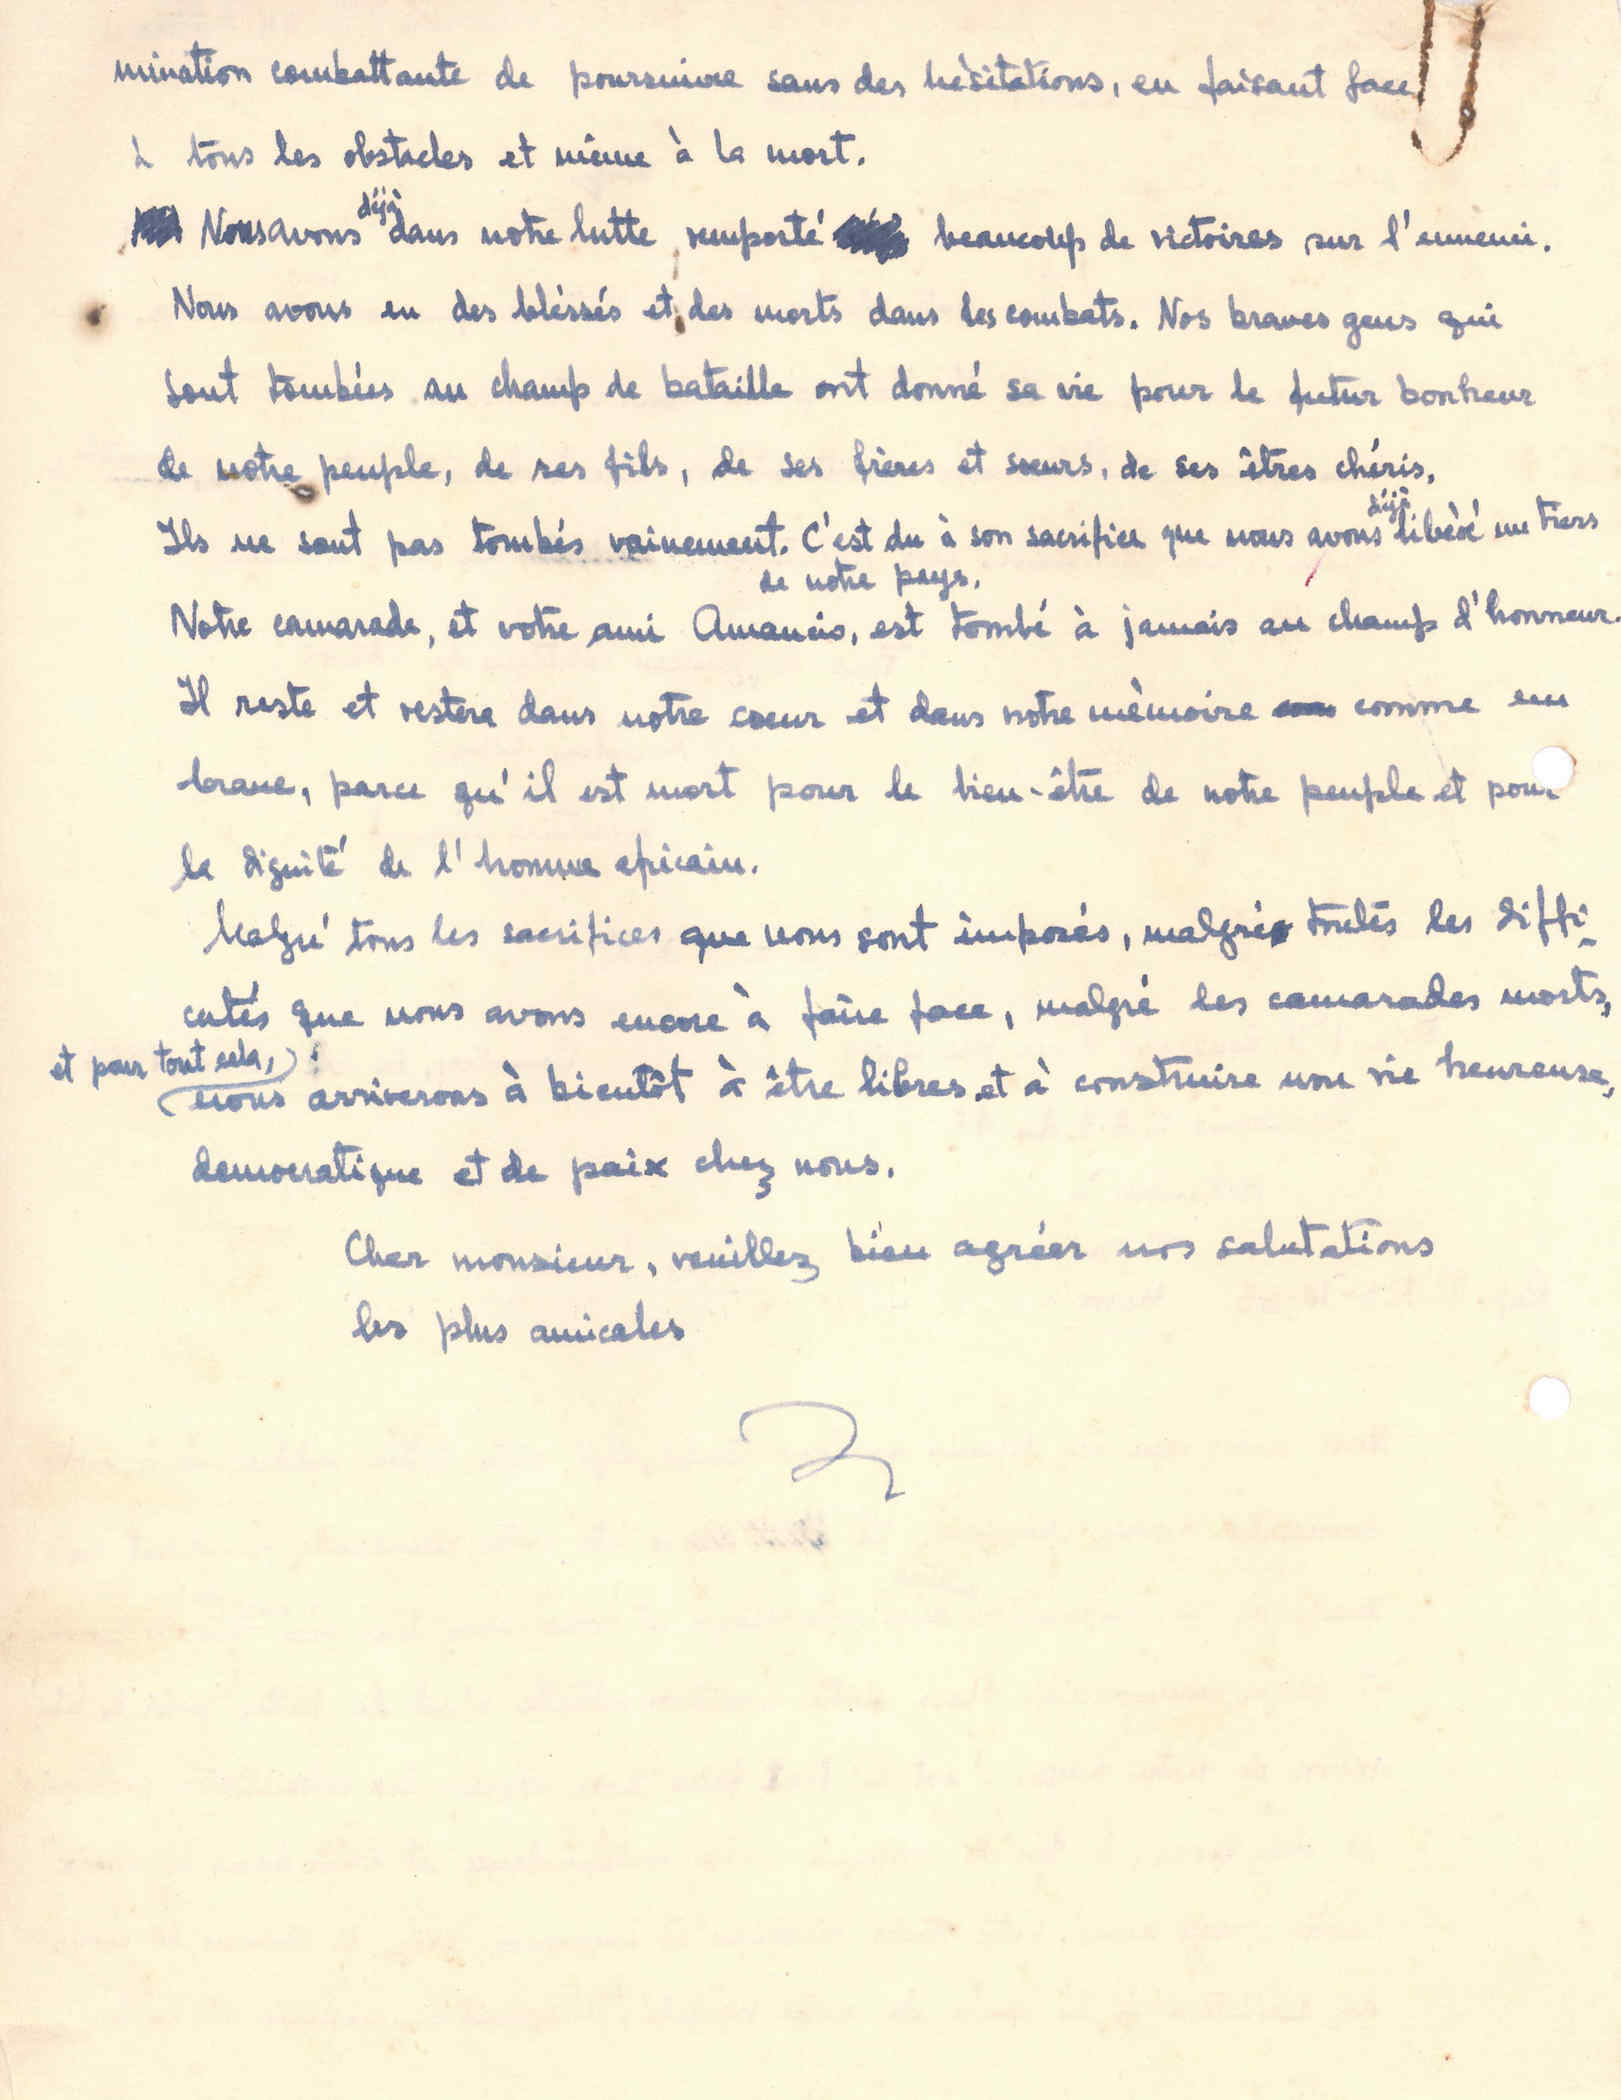 mination combattante de poursuivre sans des hèsitations, en faisant face
à tous les obstacles et même à la mort.
Nous avons déjà dans notre lutte remporté beaucoup de victoires sur l'ennemi.
Nous avons eu des bléssés et des morts dans les combats. Nos braves gens qui
sont tombées au champ de bataille ont donné sa vie pour le futur bonheur
de notre peuple, de ses fils, de ses frères et soeurs, de ses êtres chéris.
Ils ne sont pas tombés vainement. C'est du à son sacrifice que nous avons déjà libèré un tiers
de notre pays.
Notre camarade, et votre ami Amancio, est tombé à jamais au champ d'honneur.
Il reste et restera dans notre coeur et dans notre mèmoire comme un
brave, parce qu'il est mort pour le bien-être de notre peuple et pour
la dignité de l'homme africain.
Malgré tous les sacrifices que nous sont imposés, malgré toutes les diffi-
cutés que nous avons encore à faire face, malgré les camarades morts,
et pour tout cela,
nous arriverons à bientôt à être libres et à construire une vie heureuse,
democratique et de paix chez nous.
Cher monsieur, veuillez bien agréer nos salutations
les plus amicales